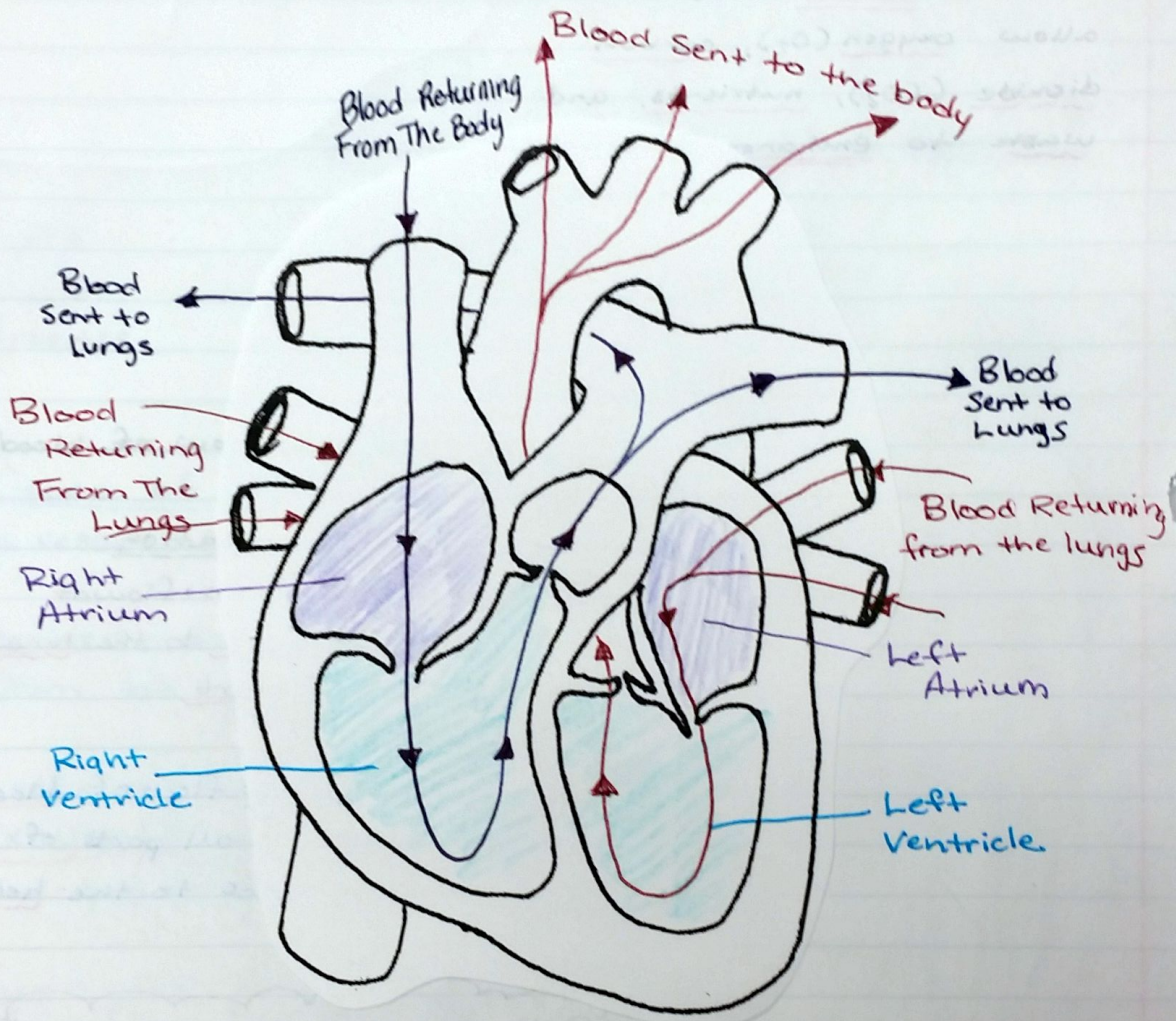 Blood Sent to the body
Blood Returning
From The Body
Blood
Sent to
Lungs
Blood
Returning
From The
Lungs
Right
Atrium
Right
Ventricle
Blood
Sent to
Lungs
Blood Returning
from the lungs
Left
Atrium
Left
Ventricle.